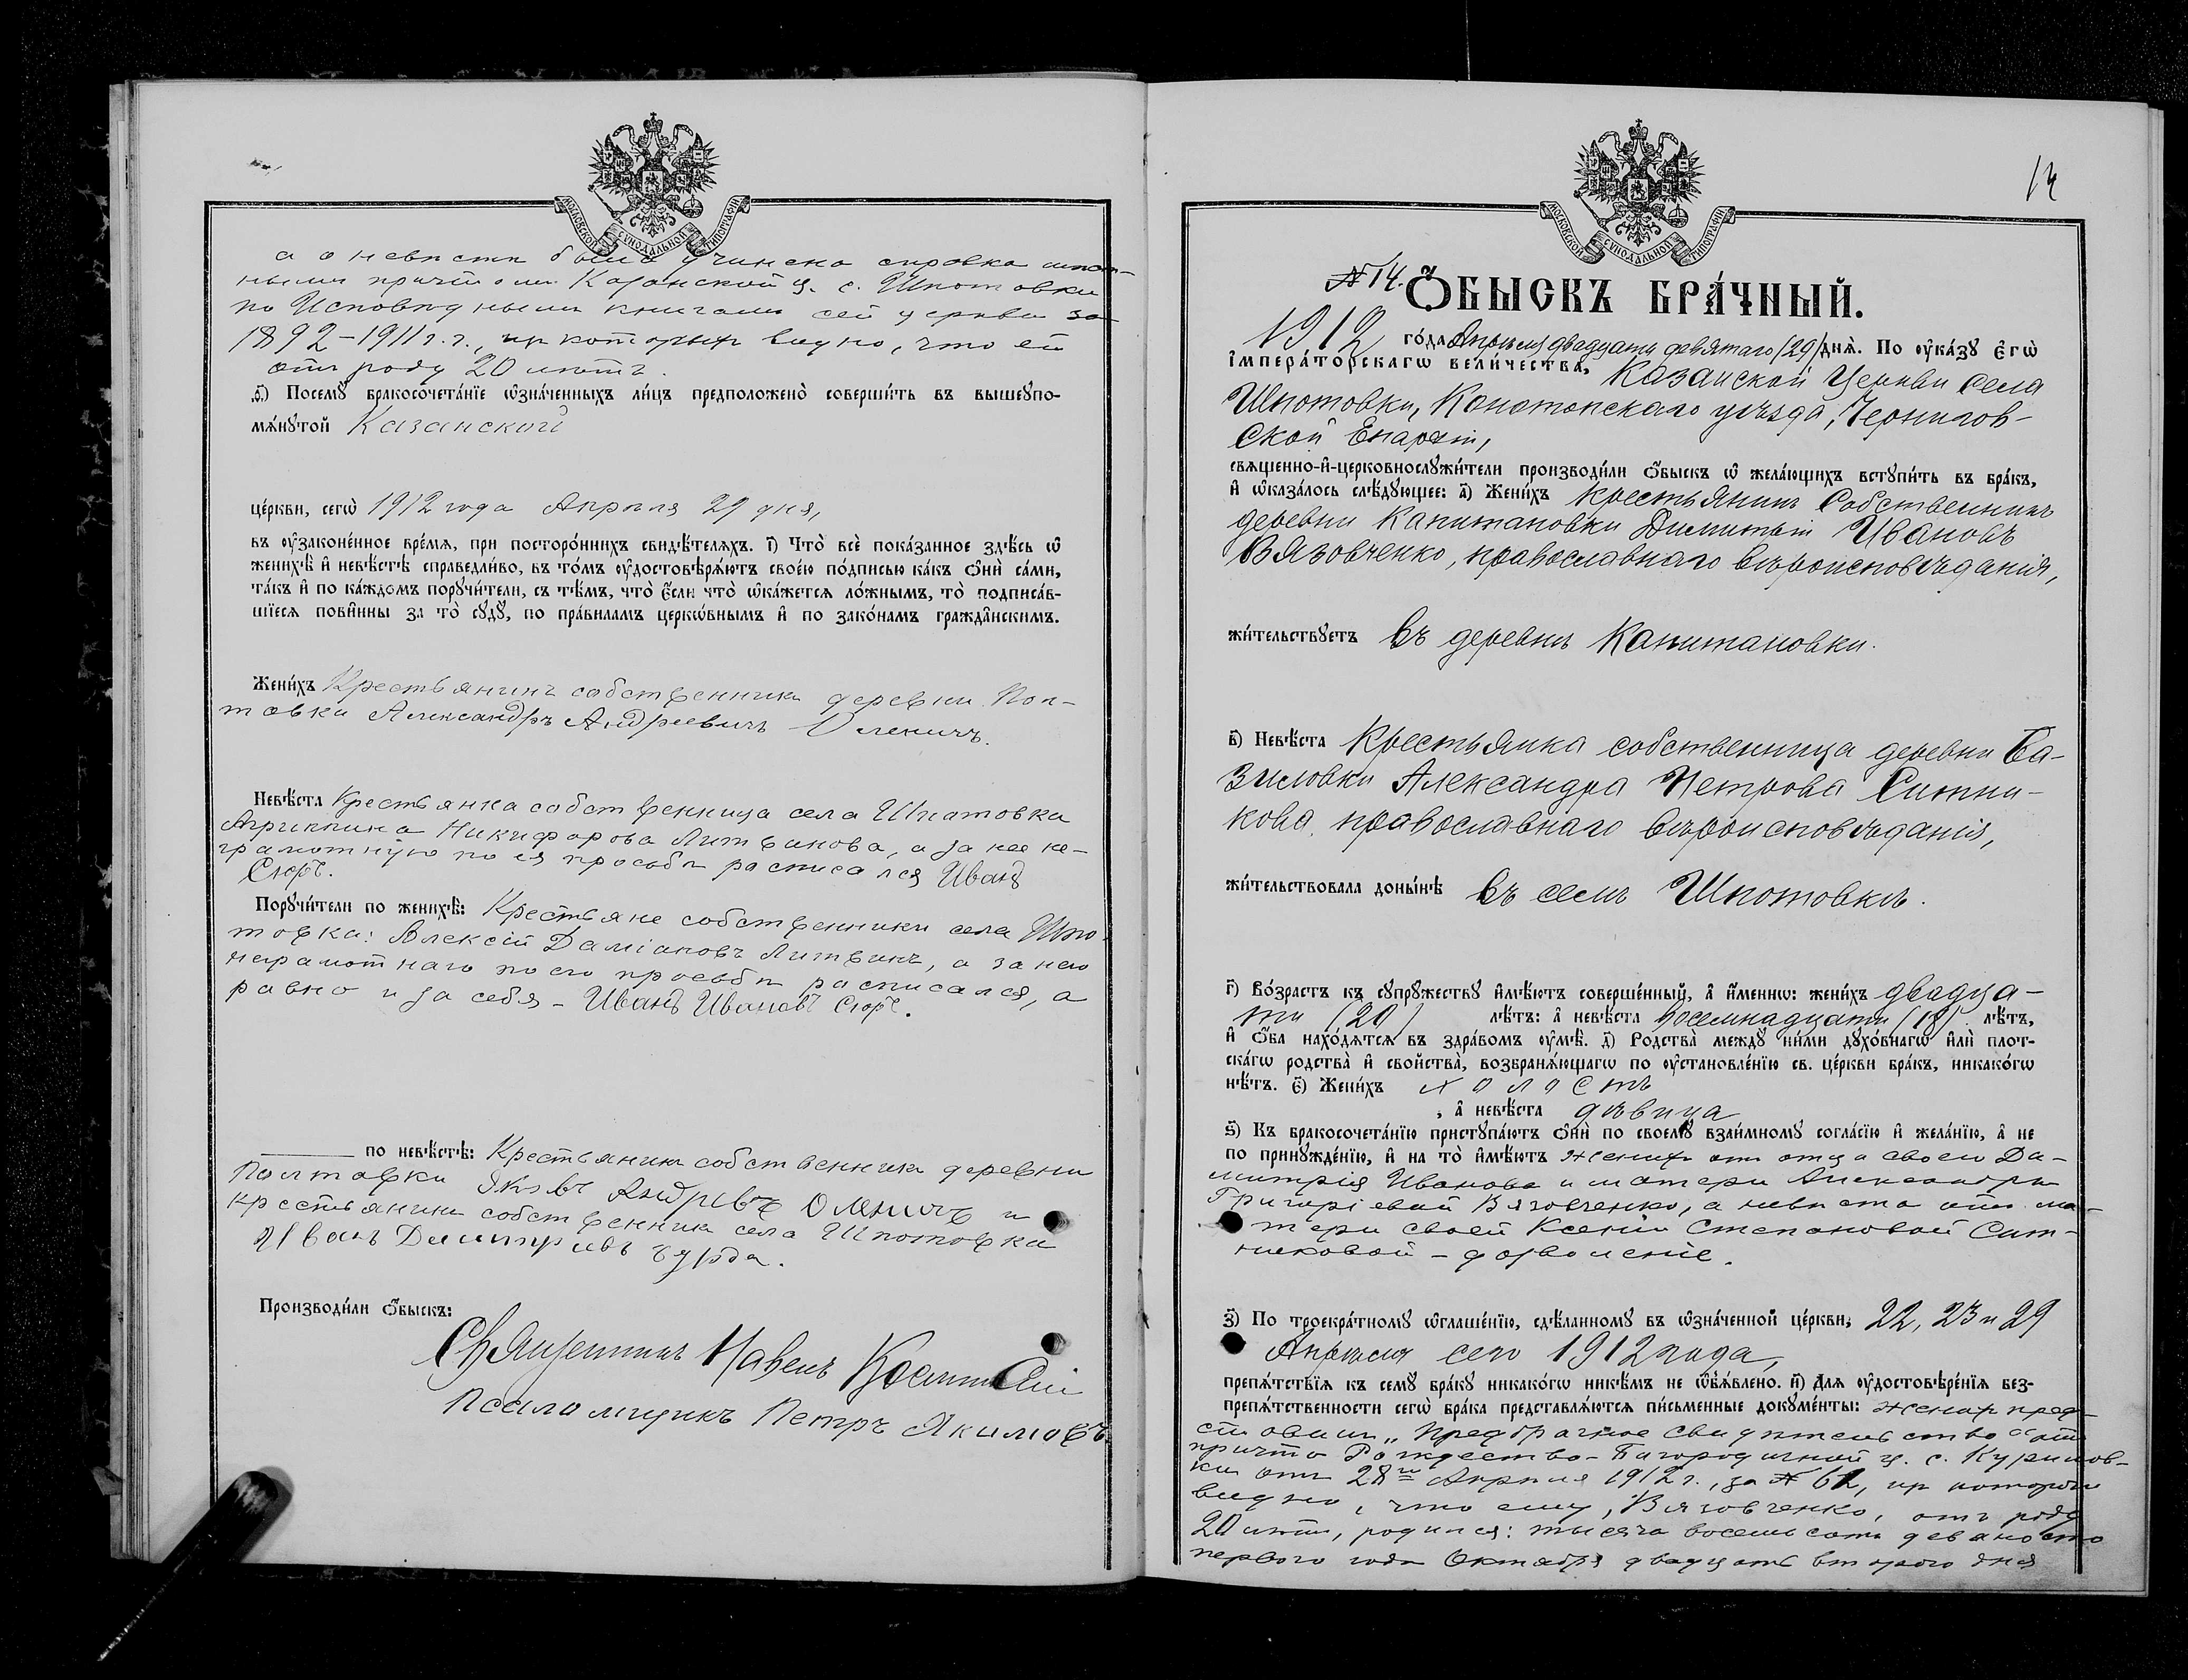 МОСКОВСКОЙ СУНОДАЛЬНОЙ ТИПОГРАФІИ
а о невѣстѣ была учинена справка мѣст-
нымъ причтомъ Казанской ц. с. Шпотовки
по Исповѣднымъ книгамъ сей церкви за
1892-1911 г.г., изъ которыхъ видно, что ей
отъ роду 20 лѣтъ.
Посемꙋ̀ бракосочета́нїе ѡ҆зна́ченныхъ ли́цъ предположено̀ соверши́ть въ вышеꙋпо-
мѧ́нꙋтой Казанской
це́ркви, сегѡ̀ 1912 года Апрѣля 29 дня,
въ ᲂу҆законе́нное вре́мѧ, при посторо́ннихъ свидѣ́телѧхъ. і҃) Что̀ всѐ пока́занное здѣ́сь ѡ҆
женихѣ̀ и҆ невѣ́стѣ справедли́во, въ то́мъ ᲂу҆достовѣрѧ́ютъ свое́ю по́дписью ка́къ ѻ҆нѝ са́ми,
та́къ и҆ по ка́ждомъ порꙋчи́тели, съ тѣ́мъ, что̀ є҆́сли что̀ ѡ҆ка́жетсѧ ло́жнымъ, то̀ подписа́в-
шїесѧ пови́нны за то̀ сꙋдꙋ̀, по пра́виламъ церко́внымъ и҆ по зако́намъ гражда́нскимъ.
Жени́хъ Крестьянинъ собственникъ деревни Пол-
товки Александръ Андреевичъ Оленичъ.
Невѣ́ста Крестьянка собственница села Шпотовка
Агриппина Никифорова Литвинова, а за нее не-
грамотную по ея просьбѣ росписался Иванъ
Сюръ.
Порꙋчи́тели по женихѣ̀: Крестьяне собственники села Шпо-
товка: Алексій Даміановъ Литвинъ, а за него
неграмотнаго по его просьбѣ расписался, а
равно и за себя - Иванъ Ивановъ Сюръ.
по невѣ́стѣ: Крестьянинъ собственникъ деревни
Полтавки Яковъ Андрѣевъ Оленичъ и
крестьянинъ собственникъ села Шпотовка
Иванъ Димитріевъ
Производи́ли ѻ҆́быскъ:
Священникъ Павелъ
Псаломщикъ Петръ Якимовъ
МОСКОВСКОЙ СУНОДАЛЬНОЙ ТИПОГРАФІИ
№ 14. Ѻ҆́БЫСКЪ БРА́ЧНЫЙ.
1912 го́да Апрѣля двадцать девятаго /29/ днѧ̀. По ᲂу҆ка́зꙋ Є҆гѡ̀
І҆мпера́торскагѡ вели́чества, Казанской Церкви села
Шпотовки, Конотопскаго уѣзда, Чернигов-
ской Епархіи,
свѧще́нно-и҆-церковнослꙋжи́тели производи́ли ѻ҆́быскъ ѡ҆ жела́ющихъ встꙋпи́ть въ бра́къ,
и҆ ѡ҆каза́лось слѣ́дꙋющее: а҃) Жени́хъ крестьянинъ Собственникъ
деревни Капитановки Димитрій Ивановъ
Вязовченко, православнаго вѣроисповѣданія,
жи́тельствꙋетъ въ деревнѣ Капитановки.
в҃) Невѣ́ста Крестьянка собственница деревни Ба-
зиловки Александра Петрова Ситни-
кова, православнаго вѣроисповѣданія,
жи́тельствовала доны́нѣ въ селѣ Шпотовкѣ.
г҃) Во́зрастъ къ сꙋпрꙋ́жествꙋ и҆мѣ́ютъ соверше́нный, а҆ и҆́меннѡ: жени́хъ двадца-
ти (20) лѣ́тъ: а҆ невѣ́ста восемнадцати (18) лѣ́тъ,
и҆ ѻ҆́ба нахо́дѧтсѧ въ здра́вомъ ᲂу҆мѣ̀. д҃) Родства̀ междꙋ̀ ни́ми дꙋхо́внагѡ и҆лѝ плот-
ска́гѡ родства̀ и҆ сво́йства̀, возбранѧ́ющагѡ по ᲂу҆становле́нїю св. це́ркви бра́къ, никако́гѡ
нѣ́тъ. є҃) Жени́хъ холостъ
, а҆ невѣ́ста дѣвица
ѕ҃) Къ бракосочета́нїю пристꙋпа́ютъ ѻ҆нѝ по своемꙋ̀ взаи́мномꙋ согла́сїю и҆ жела́нїю, а҆ не
по принꙋжде́нїю, и҆ на то̀ и҆мѣ́ютъ женихъ отъ отца своего Ди-
митрія Иванова и матери Александры
Григоріевой Вязовченко, а невѣста отъ ма-
тери своей Ксеніи Степановой Сит-
никовой - дозволеніе.
з҃) По троекра́тномꙋ ѡ҆глаше́нїю, сдѣ́ланномꙋ въ ѡ҆зна́ченной це́ркви, 22, 23 и 29
Апрѣля сего 1912 года,
препѧ́тствїѧ къ семꙋ̀ бра́кꙋ никако́гѡ никѣ́мъ не ѡ҆б̾ѧ́влено. и҃) Длѧ ᲂу҆достовѣре́нїѧ без-
препѧ́тственности сегѡ̀ бра́ка представлѧ́ютсѧ пи́сьменные докꙋме́нты: женихъ пред-
ставилъ „Предбрачное свидѣтельство“ отъ
причта Рождество-Богородичной ц. с. Курилов-
ки отъ 28го Апрѣля 1912 г., за № 62, изъ котораго
видно, что ему, Вязовченко, отъ роду
20 лѣтъ, родился: тысяча восемьсотъ девяносто
перваго года Октября двадцать втораго дня